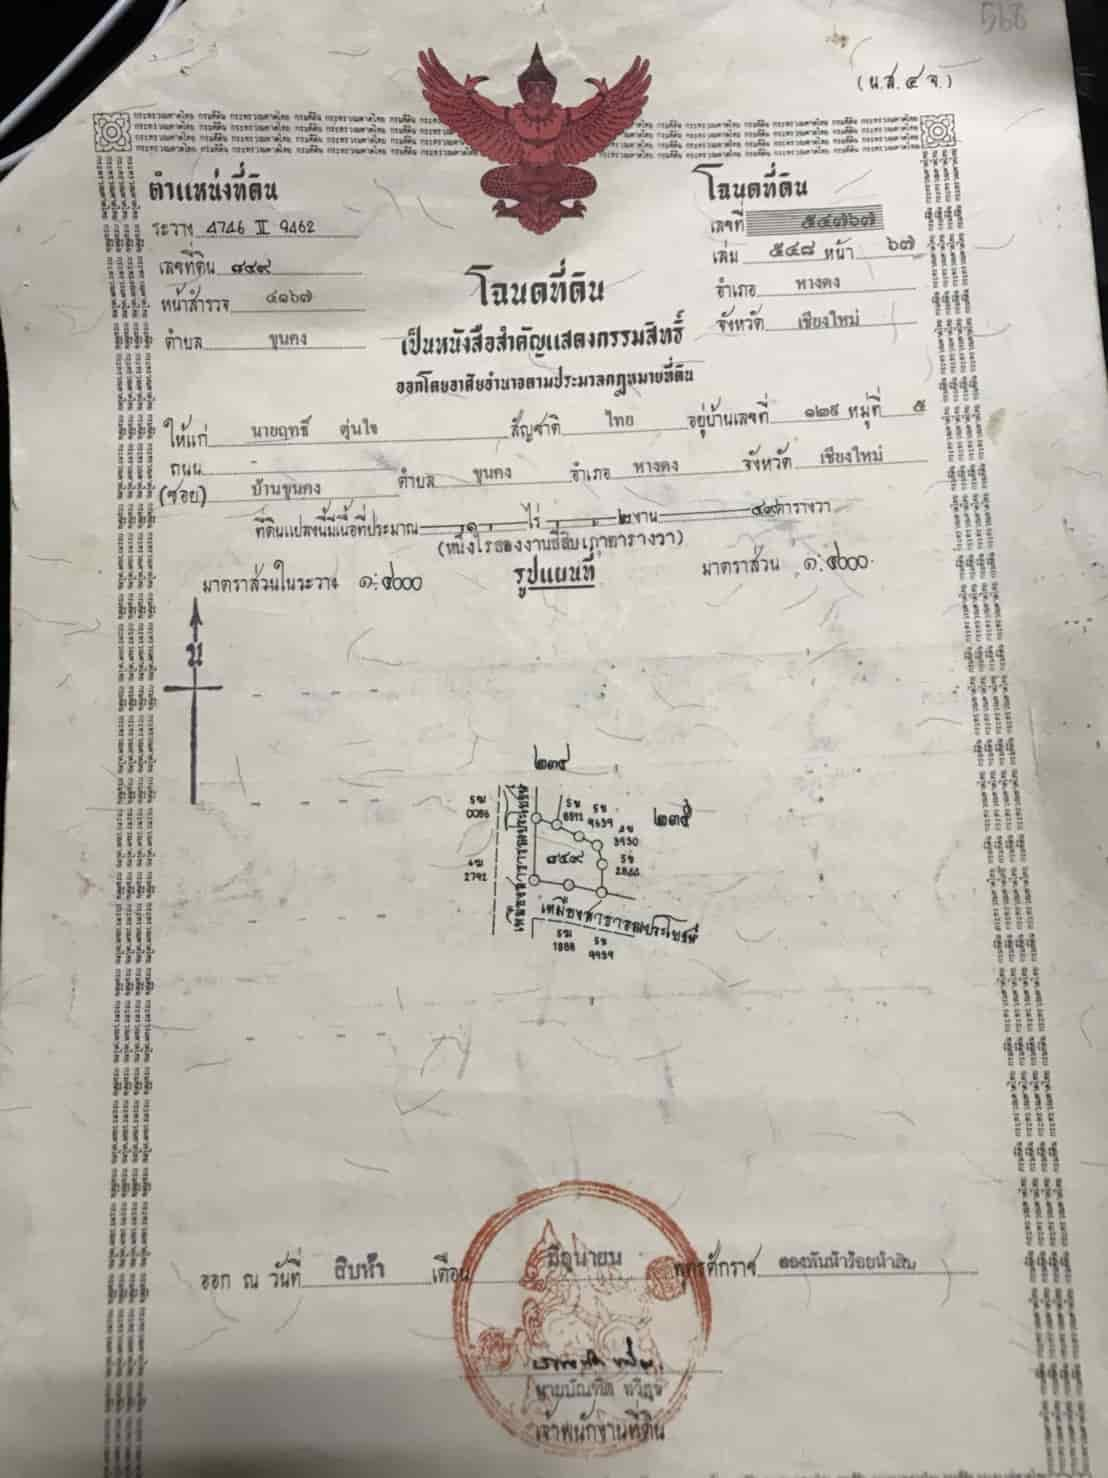 (น.ส. ๔ จ.)
ตำแหน่งที่ดิน
ระวาง 4746 II 9462
เลขที่ดิน ๘๔๙
หน้าสำรวจ ๔๑๖๗
ตำบล ขุนคง
โฉนดที่ดิน
เลขที่ ๕๔๗๖๗
เล่ม ๕๔๘ หน้า ๖๗
อำเภอ หางดง
จังหวัด เชียงใหม่
โฉนดที่ดิน
เป็นหนังสือสำคัญแสดงกรรมสิทธิ์
ออกโดยอาศัยอำนาจตามประมวลกฎหมายที่ดิน
ให้แก่ นายฤทธิ์ ตุ่นใจ สัญชาติ ไทย อยู่บ้านเลขที่ ๑๒๙ หมู่ที่ ๕
ถนน -
(ซอย) บ้านขุนคง ตำบล ขุนคง อำเภอ หางดง จังหวัด เชียงใหม่
ที่ดินแปลงนี้มีเนื้อที่ประมาณ ๑ ไร่ ๒ งาน ๔๙ ตารางวา
(หนึ่งไร่สองงานสี่สิบเก้าตารางวา)
มาตราส่วนในระวาง ๑:๔๐๐๐ รูปแผนที่ มาตราส่วน ๑:๔๐๐๐
น
๒๓๔
๒๓๕
0086
2792
3930
2866
๘๔๙
เหมืองสาธารณประโยชน์
เหมืองสาธารณประโยชน์
1888
ออก ณ วันที่ สิบห้า เดือน มิถุนายน พุทธศักราช สองพันห้าร้อยห้าสิบ
เจ้าพนักงานที่ดิน